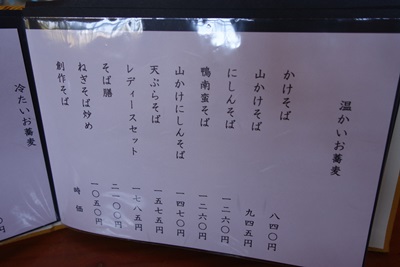 温かいお蕎麦
かけそば 八四〇円
山かけそば 九四五円
にしんそば 一二六〇円
鴨南蛮そば 一二六〇円
山かけにしんそば 一四七〇円
天ぷらそば 一五七五円
レディースセット 一七八五円
そば膳 二一〇〇円
ねぎそば炒め 一〇五〇円
創作そば 時価
冷たいお蕎麦